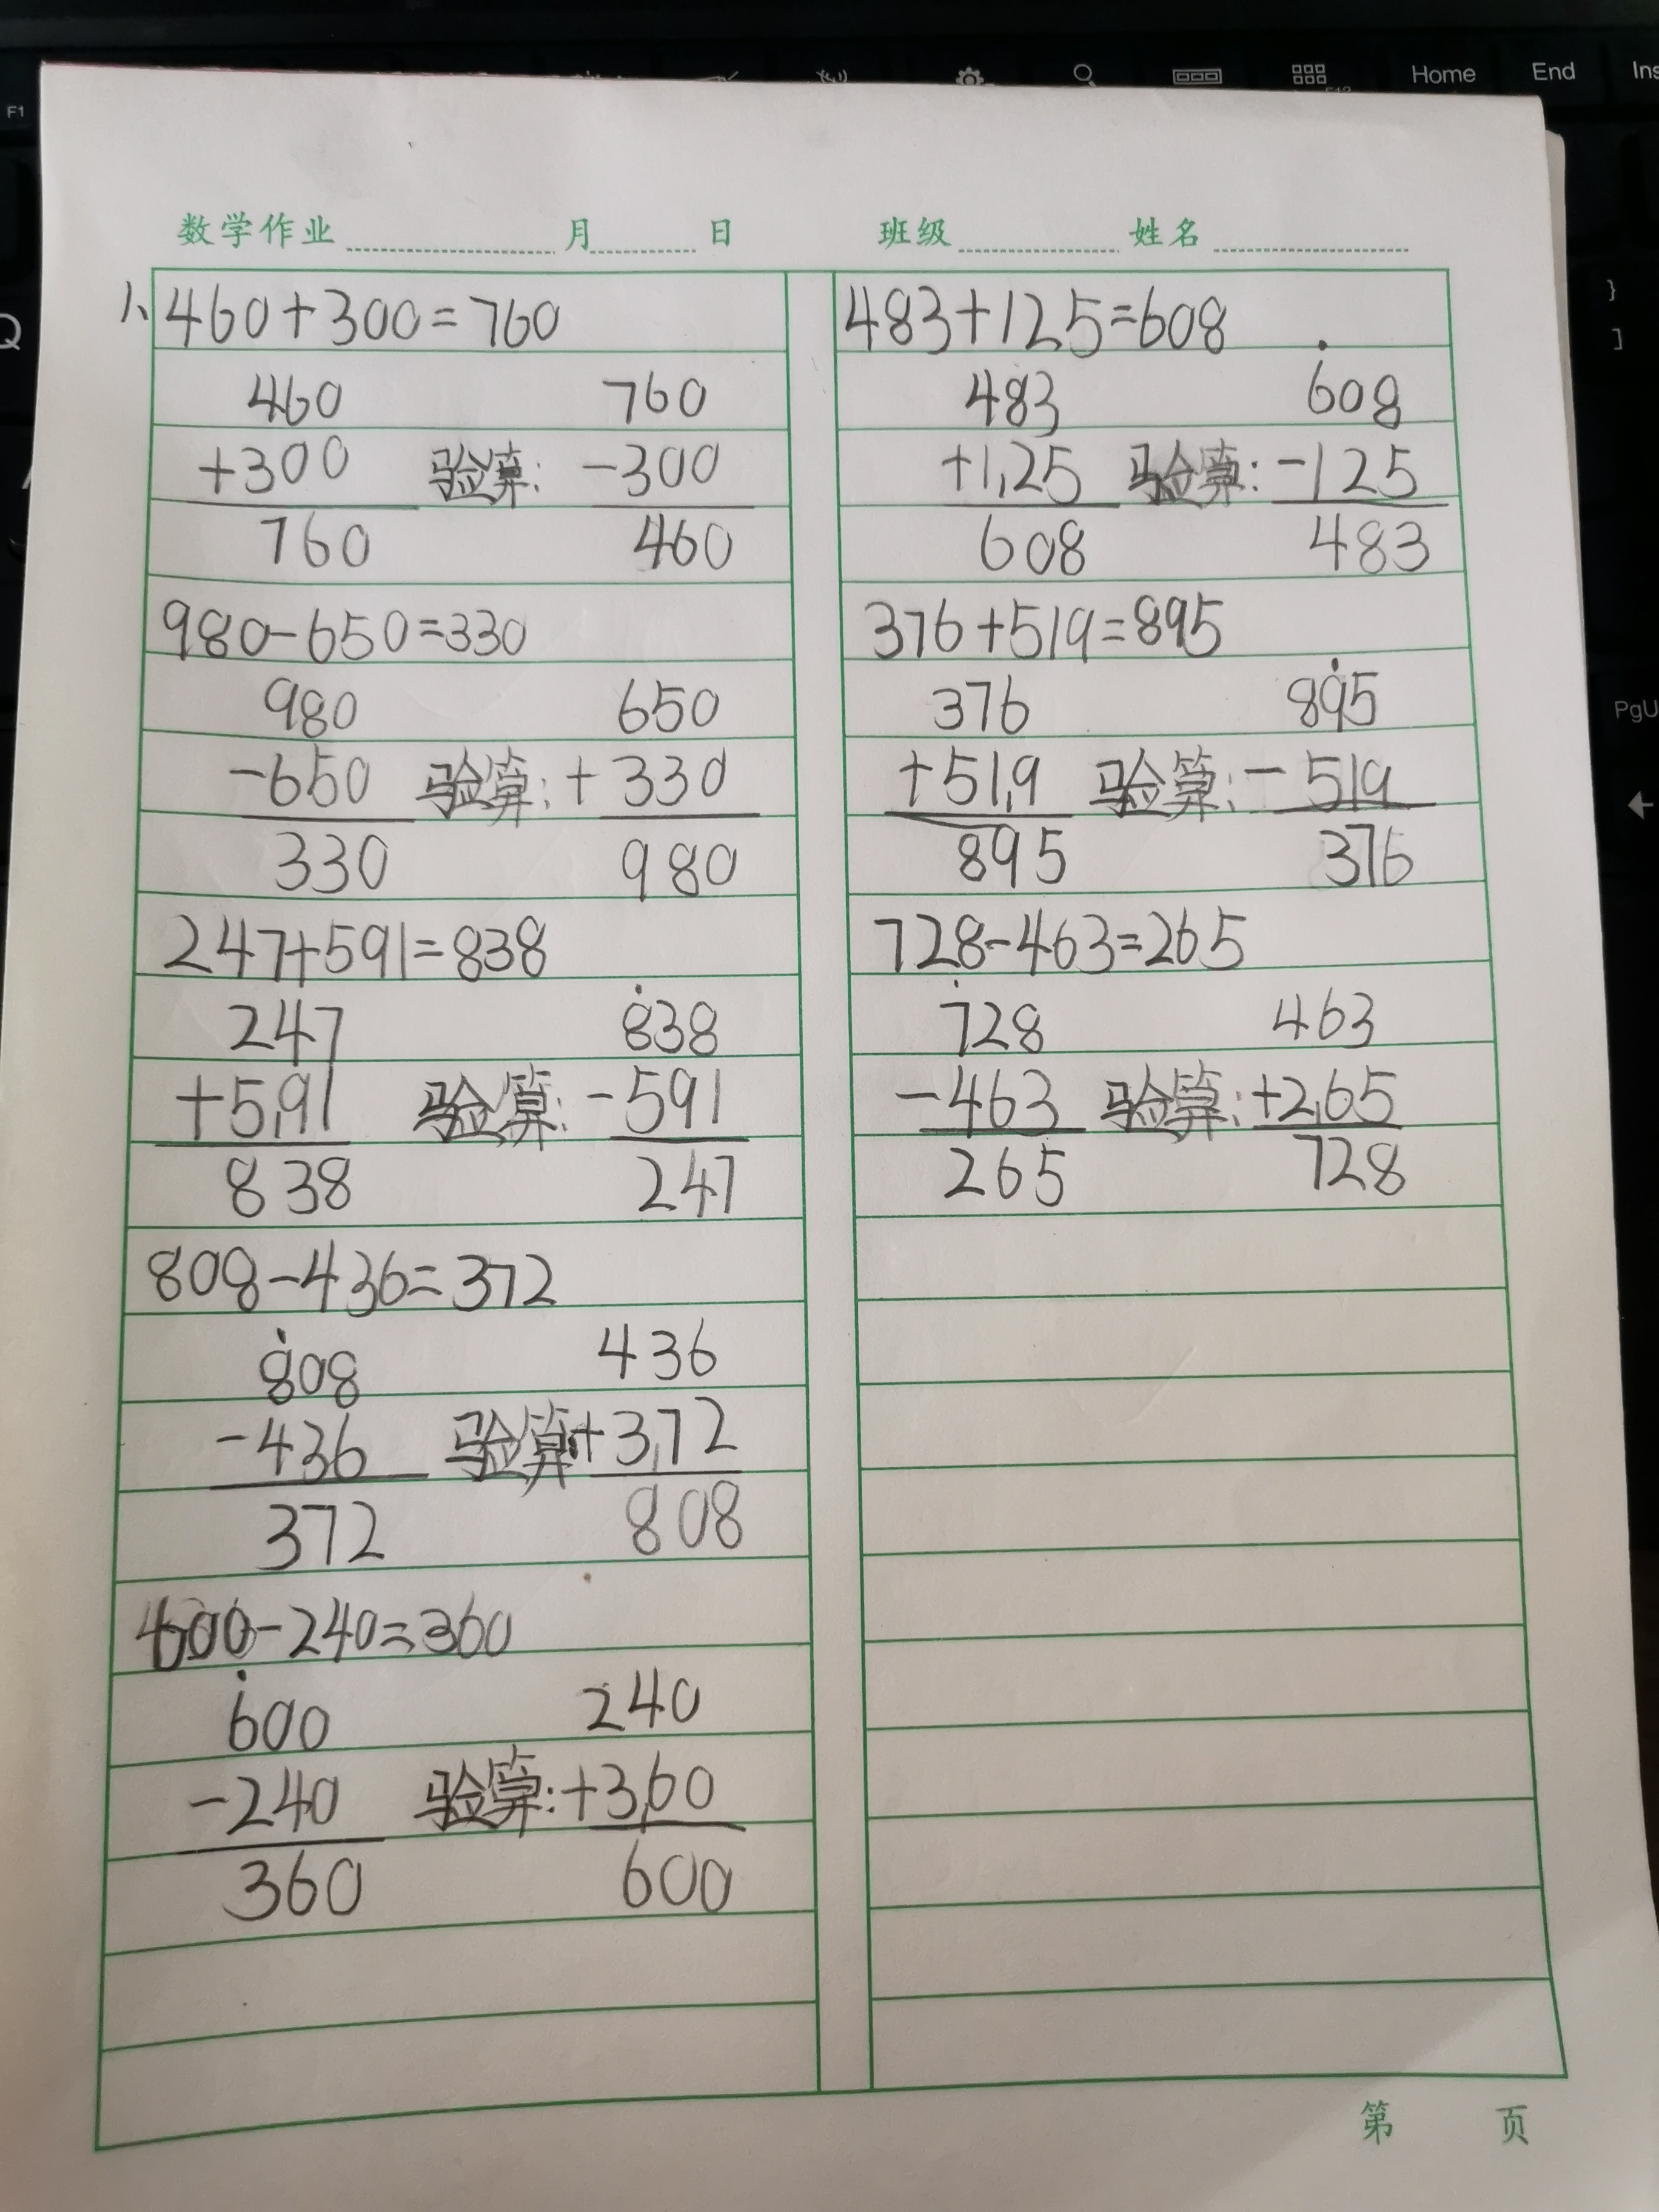 Home End Ins
F1
Q
}
]
PgU
数学作业 月 日 班级 姓名
1、460+300=760
460 760
+300 验算: -300
760 460
980-650=330
980 650
-650 验算: +330
330 980
247+591=838
247 838
+591 验算: -591
838 247
808-436=372
808 436
-436 验算 +372
372 808
600-240=360
600 240
-240 验算: +360
360 600
483+125=608
483 608
+125 验算: -125
608 483
376+519=895
376 895
+519 验算: -519
895 376
728-463=265
728 463
-463 验算: +265
265 728
第 页